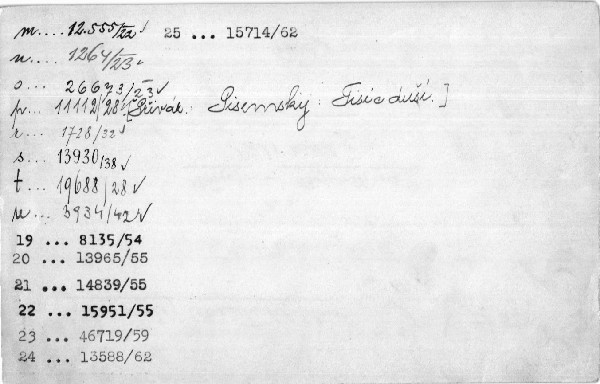 m.... 12.555/22 √ 25 ... 15714/62
n.... 1264/23 √
o... 26673/23 √
p... 11112/28 [Přívaz. Pisemskij: Tisíc duší.]
r... 1728/32 √
s... 13930/38 √
t... 19688/28 √
u... 3934/42 √
19 ... 8135/54
20 ... 13965/55
21 ... 14839/55
22 ... 15951/55
23 ... 46719/59
24 ... 13588/62